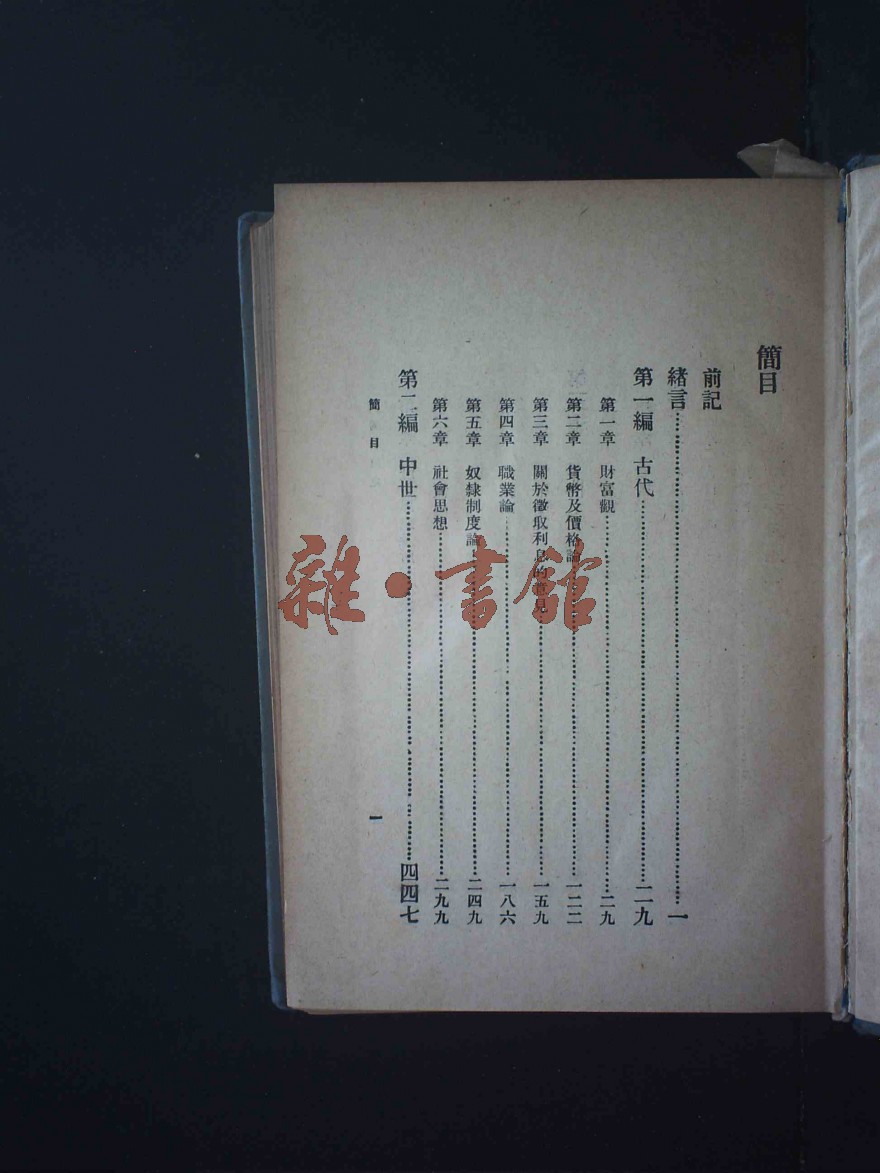 簡目
前記
緒言……一
第一編　古代……二九
第一章　財富觀……二九
第二章　貨幣及價格論……一二二
第三章　關於徵取利息的意見……一五九
第四章　職業論……一八六
第五章　奴隸制度論……二四九
第六章　社會思想……二九九
第二編　中世……四四七
簡目　一
雜·書館